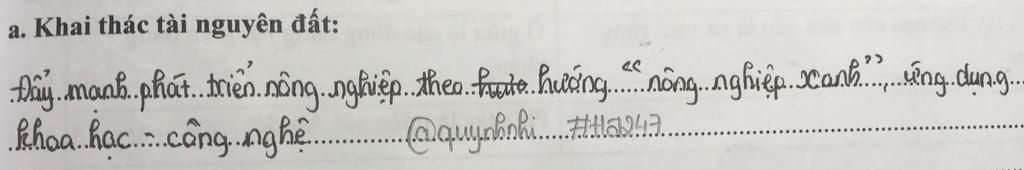 a. Khai thác tài nguyên đất:
Đẩy mạnh phát triển nông nghiệp theo hướng "nông nghiệp xanh", ứng dụng
khoa học - công nghệ @quynhnhi